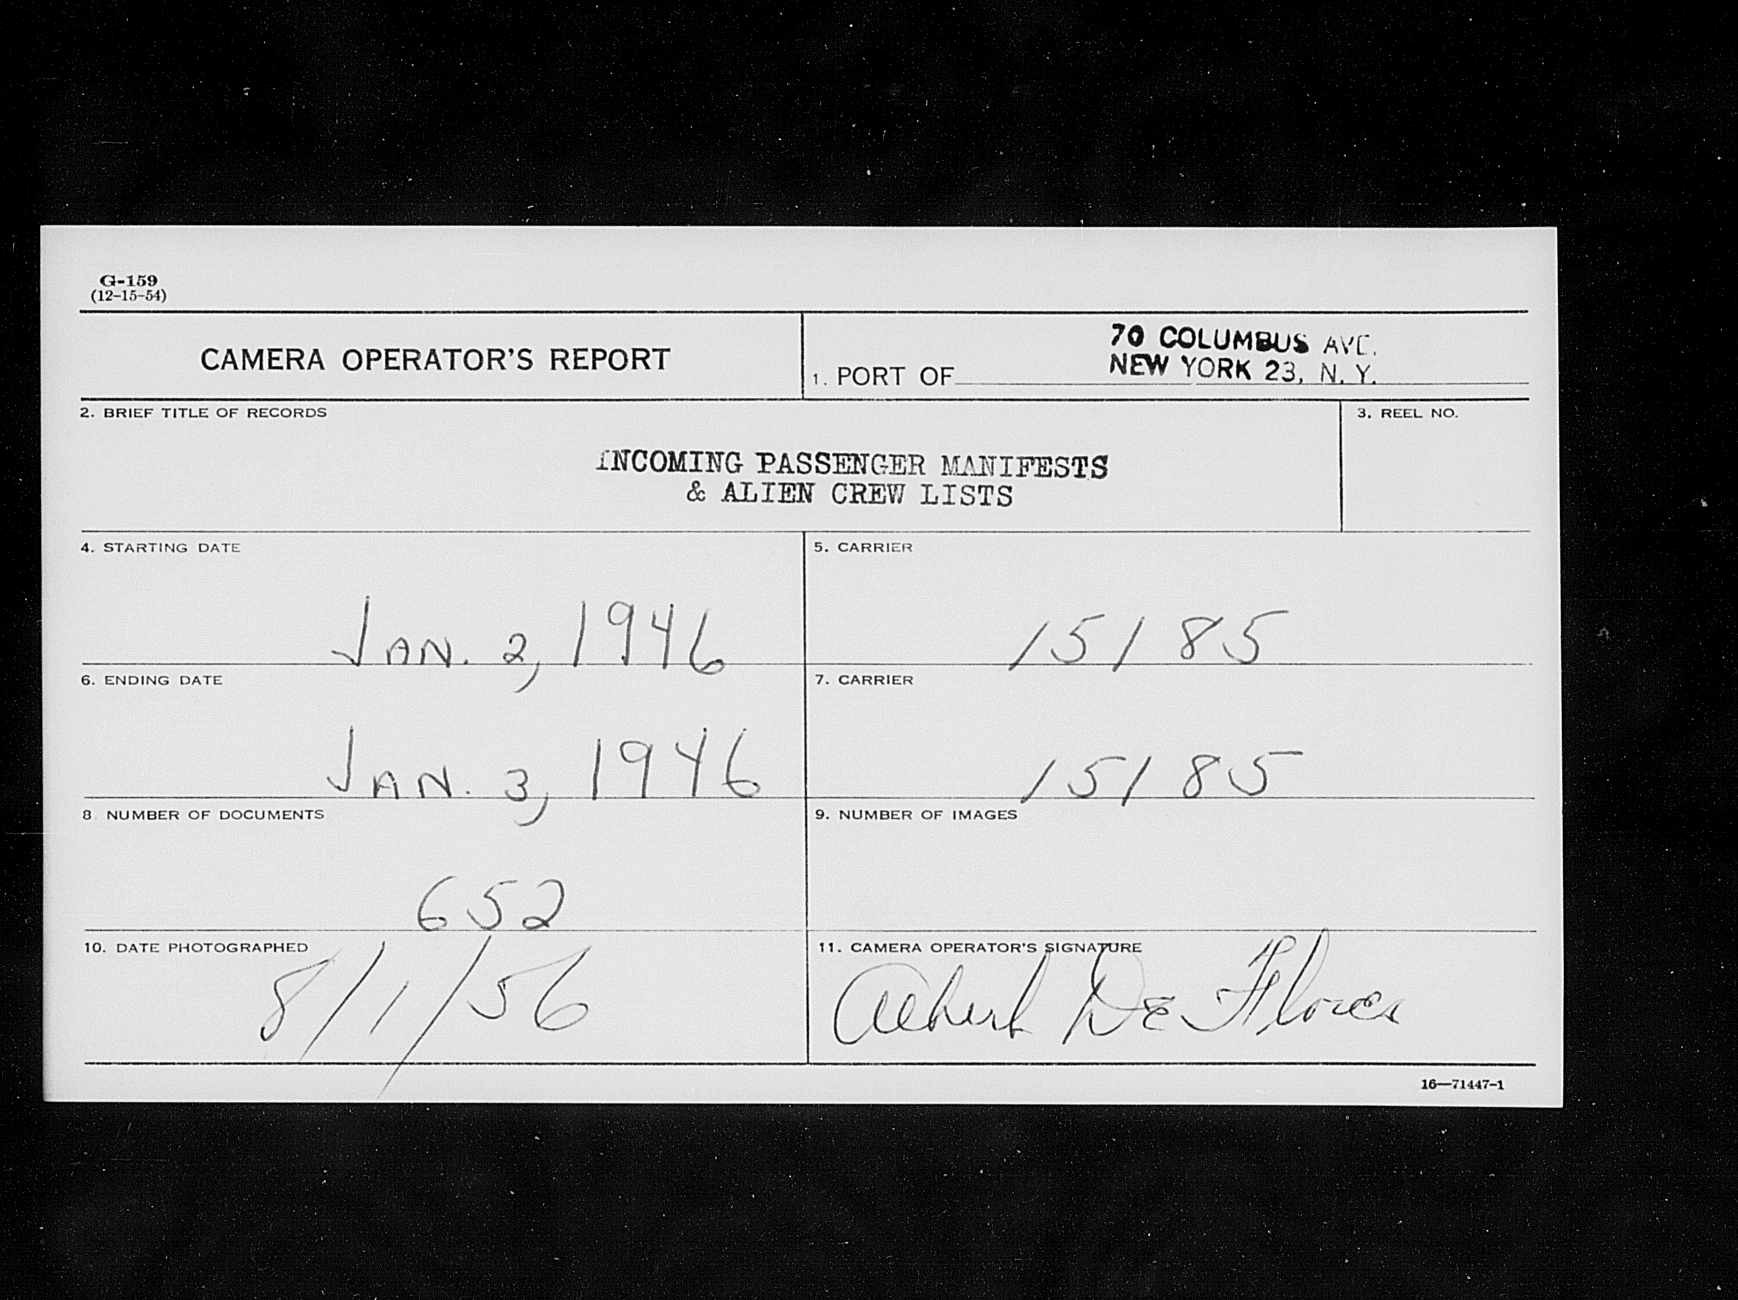 G-159
(12-15-54)
CAMERA OPERATOR'S REPORT
70 COLUMBUS AVE.
NEW YORK 23, N. Y.
1. PORT OF
2. BRIEF TITLE OF RECORDS
3. REEL NO.
INCOMING PASSENGER MANIFESTS
& ALIEN CREW LISTS
4. STARTING DATE
5. CARRIER
JAN. 2, 1946
15185
6. ENDING DATE
7. CARRIER
JAN. 3, 1946
15185
8 NUMBER OF DOCUMENTS
9. NUMBER OF IMAGES
652
10. DATE PHOTOGRAPHED
11. CAMERA OPERATOR'S SIGNATURE
8/1/56
Albert De Flores
16—71447-1